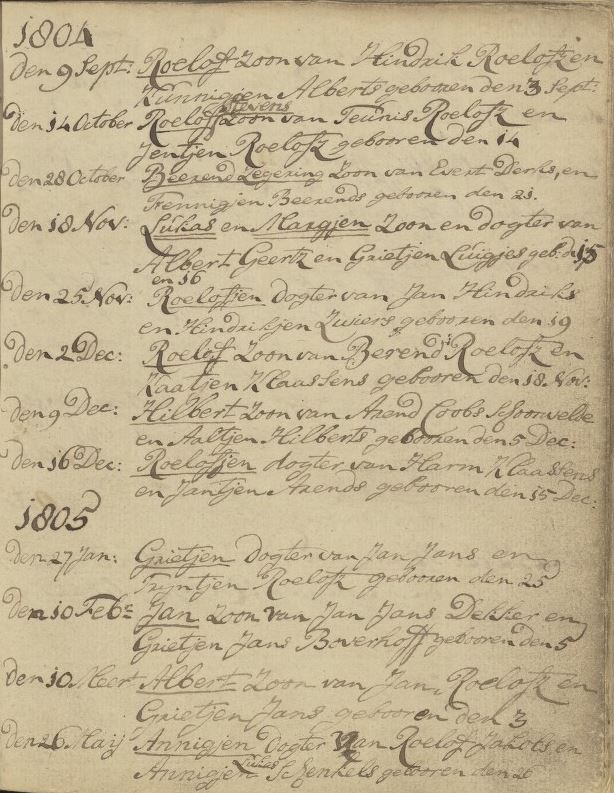 1804
den 9 Sept: Roelof Zoon van Hindrik Roelofs en
Hunnigjen Alberts gebooren den 3 Sept:
Stevens
den 14 October Roelof Zoon van Teunis Roelofs en
Jentjen Roelofs gebooren den 14
den 28 October Beerend Legering Zoon van Evert Derks, en
Fennigjen Beerends gebooren den 21.
den 18 Nov: Lukas en Margjen Zoon en dogter van
Albert Geerts en Grietjen Luigjes geb: d: 15
en 16
den 25 Nov: Roelofjen Dogter van Jan Hindriks
en Hindrikjen Zwiers gebooren den 19
den 2 Dec: Roelof Zoon van Berend Roelofs en
Kaatjen Klaassens gebooren den 18 Nov:
den 9 Dec: Hilbert Zoon van Arend Coobs Schoorwelde
en Aaltjen Hilberts gebooren den 5 Dec:
den 16 Dec: Roelofjen dogter van Harm Klaassens
en Jantjen Arends gebooren den 15 Dec:
1805
den 27 Jan: Grietjen Dogter van Jan Jans en
Trijntjen Roelofs gebooren den 25
den 10 Febr Jan Zoon van Jan Jans Dekker en
Grietjen Jans Boverhoff gebooren den 5
den 10 Meert Albert Zoon van Jan Roelofs en
Grietjen Jans gebooren den 3
den 26 Maij Annigjen Dogter van Roelof Jakobs en
Lukas
Annigjen Schenkels gebooren den 26